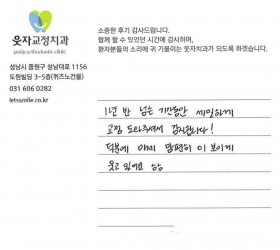 소중한 후기 감사드립니다.
함께 할 수 있었던 시간에 감사하며,
환자분들의 소리에 귀 기울이는 웃자치과가 되도록 하겠습니다.
웃자교정치과
smile orthodontic clinic
성남시 중원구 성남대로 1156
도원빌딩 3~5층(퀴즈노건물)
031 606 0282
letssmile.co.kr
1년 반 넘는 기간동안 세밀하게
교정 도와주셔서 감사합니다!
덕분에 이제 맘편히 이 보이게
웃고 있어요 ㅎㅎ